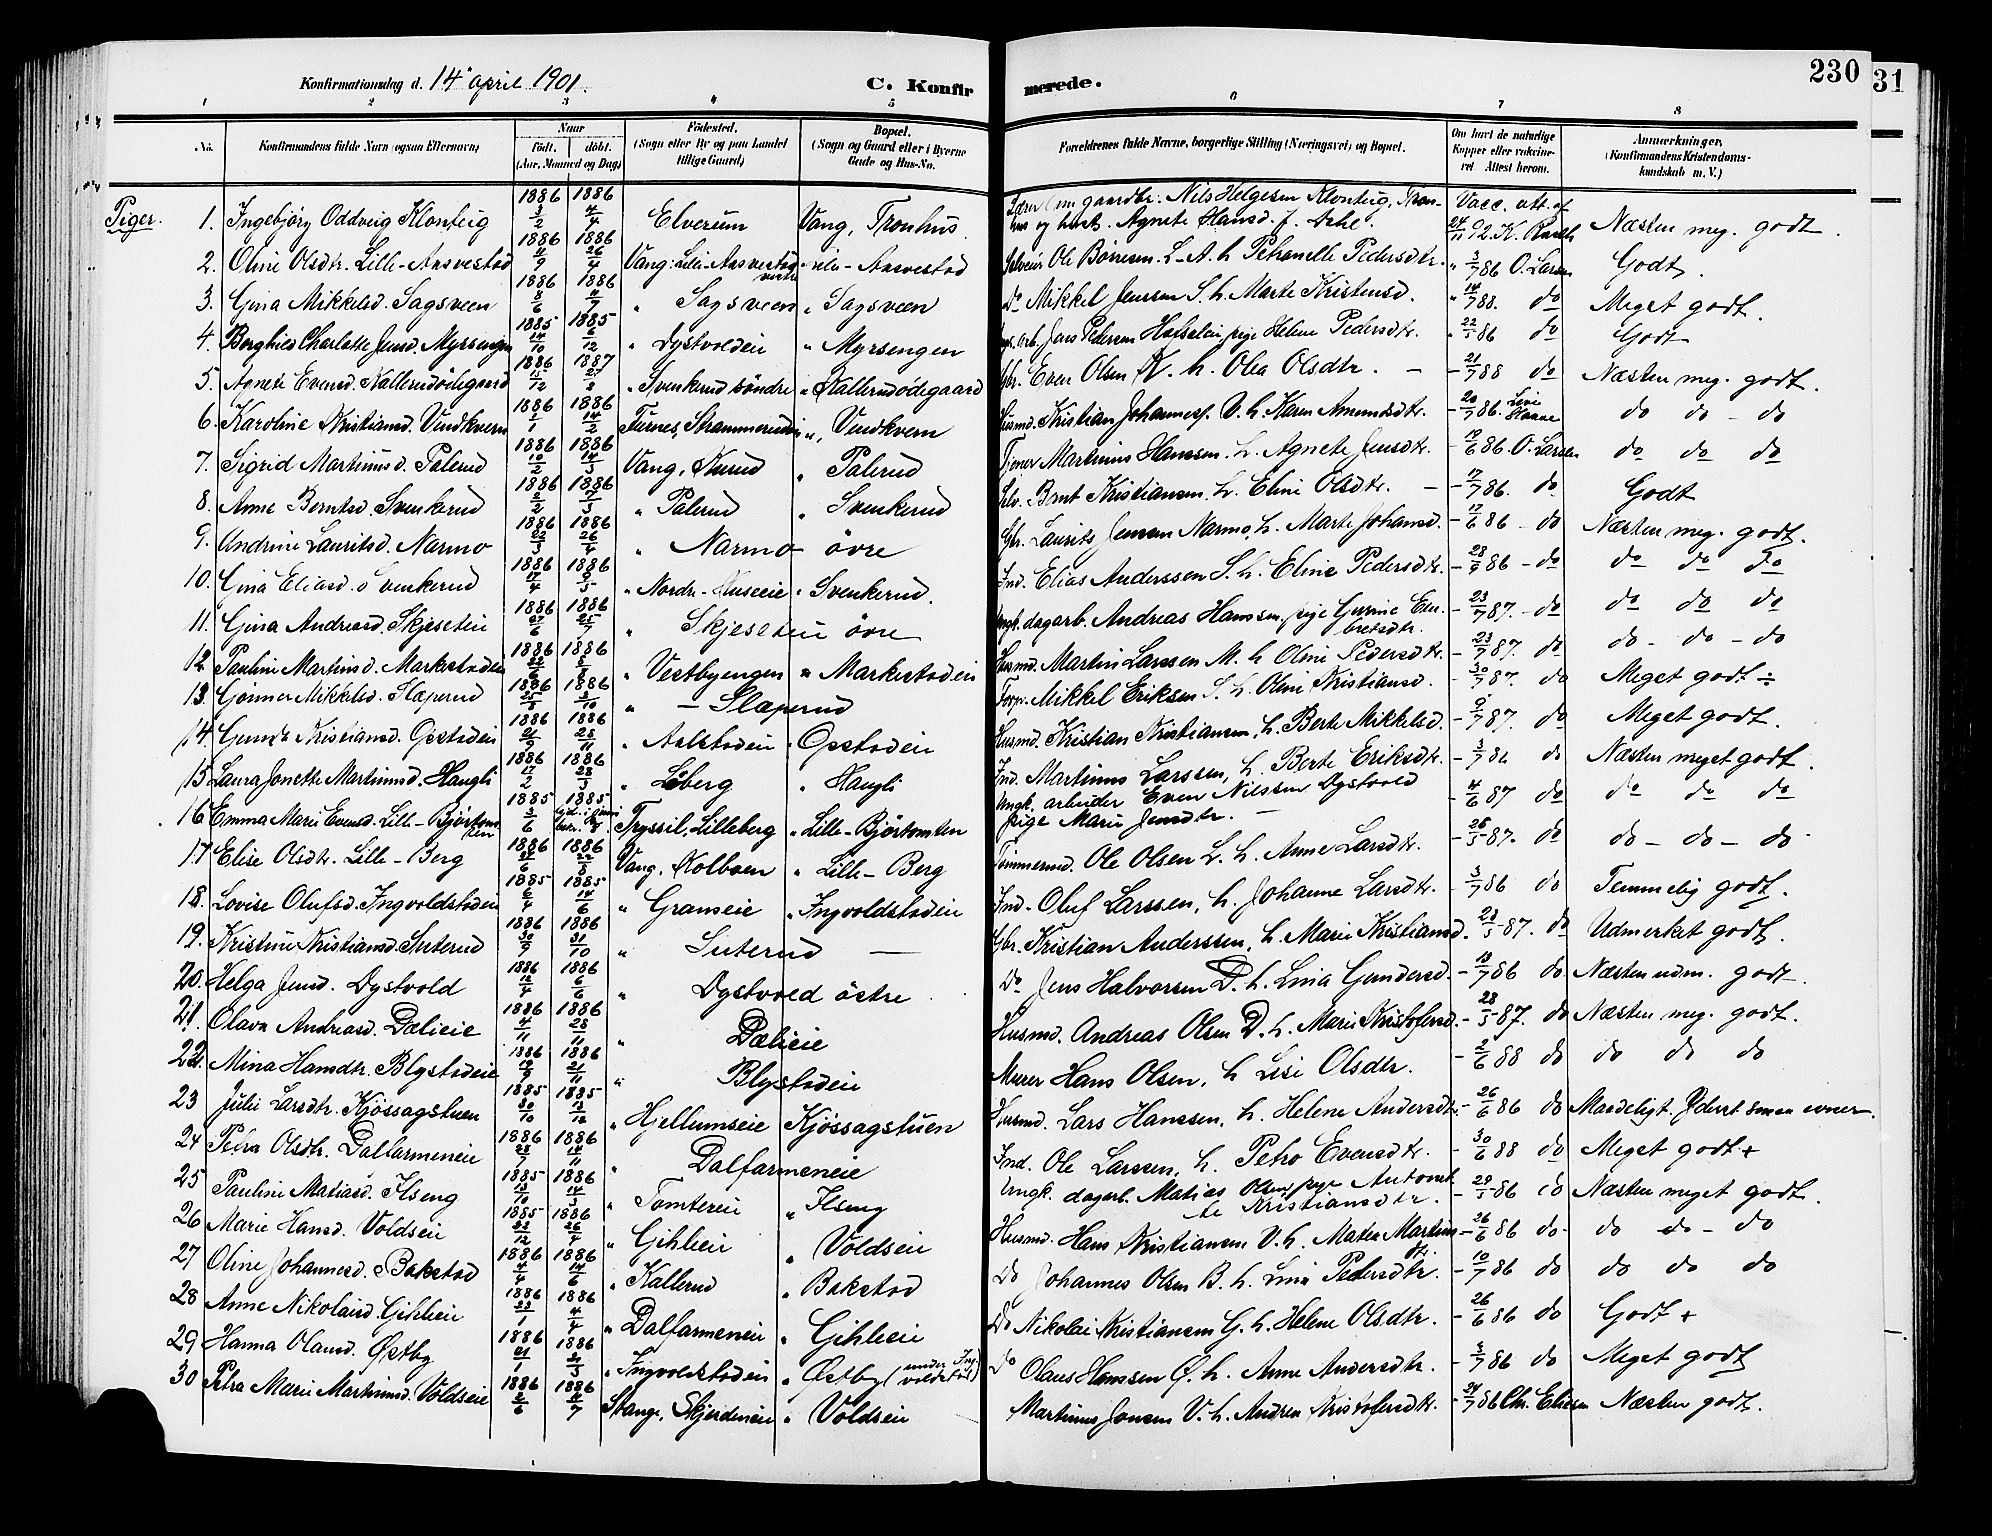 230
31
Konfirmationsdag d. 14 april 1901.
C. Konfirmerede.
1 2 3 4 5 6 7 8
No.
Konfirmandens fulde Navn (ogsaa Efternavn)
Naar
Födt. döbt.
(Aar, Maaned og Dag)
Födested.
(Sogn eller By og paa Landet tillige Gaard)
Bopæl.
(Sogn og Gaard eller i Byerne Gade og Hus-No.
Forældrenes fulde Navne, borgerlige Stilling (Næringsvei) og Bopæl.
Om havt de naturlige Kopper eller vaccineret. Attest herom.
Anmærkninger,
(Konfirmandens Kristendomskundskab m. V.)
Piger.
1. Ingebjörg Oddveig Klonteig 1886 3/2 1886 4/4 Elverum Vang, Tronhus gaardbr. Nils Helgesen Klonteig, Agnete Hansd. f. Vacc. att. af 24/11 92 Næsten meg. godt.
2. Oline Olsdtr. Lille-Aasvestad 1886 4/9 1886 26/4 Vang: Lille-Aasvestad Lille-Aasvestad Selveier Ole Börresen L-A. h Petranelle Pedersdtr. " 3/7 86 O. Larsen Godt.
3. Gina Mikkelsd. Sagsveen 1886 8/6 1886 11/7 " Sagsveen " Sagsveen Do Mikkel Jenssen S. h. Marte Kristensd. " 14/7 88. do Meget godt.
4. Borghild Charlotte Jensd. Myrsengen 1885 14/10 1885 6/12 " Dystvoldeie " Myrsengen Jens Pedersen pige Helene Pedersdtr. " 22/5 86 do Godt
5. Agnete Evensd. Kallerudödegaard 1886 11/12 1887 27/2 " Svenkerud söndre " Kallerudödegaard Gbr. Even Olsen K. h. Olea Olsdtr. - 21/7 88 do Næsten meg. godt.
6. Karoline Kristiansd. Vindkvern 1886 2/1 1886 14/2 Furnes, " Vindkvern Husmd. Kristian Johanness. V. h. Karen Amundsdtr. - 20/7 86. do do - do
7. Sigrid Martinusd. Palerud 1886 10/2 1886 14/3 Vang, " Palerud Tjener Martinus Hanssen h. Agnete Jensdtr. - 19/6 86. O. Larsen do do do
8. Anne Berntsd. Svenkerud 1886 2/2 1886 7/3 " Palerud " Svenkerud Selv. Brnt Kristiansen h. Eline Olsdtr. - 17/7 86. do Godt
9. Andrine Lauritsd. Narmo 1886 22/3 1886 26/4 " Narmo övre Gbr. Laurits Jensen Narmo, h. Marte Johansd. - 17/6 86 - do Næsten meg. godt.
10. Gina Eliasd. Svenkerud 1886 17/4 1886 9/5 " Nordr-Huseeie " Svenkerud. Ind. Elias Anderssen S. h. Eline Pedersdtr. - 28/9 86 - do do do do
11. Gina Andreasd. Skjeseteie 1886 27/6 1886 25/7 " Skjeseteie övre Ungk. dagarb. Andreas Hanssen, pige Gurine Embretsdtr. - 23/7 87. - do do do do
12. Pauline Martinsd. Markestadeie 1886 1886 " Vestbyengen " Markestadeie Husmd. Martin Larssen M. h Oline Pedersdtr. - 23/7 87. do do - do - do
13. Gonner Mikkelsd. Slaperud 1886 1886 3/10 " — Slaperud Torp. Mikkel Eriksen S. h. Oline Kristiansd. - 30/7 87. do Meget godt ÷
14. Gunda Kristiansd. Opstadeie 1886 21/9 1886 28/11 " Aalstadeie " Opstadeie Husmd. Kristian Kristiansen, h. Berte Mikkelsd. - 9/7 87. do Meget godt.
15. Laura Jonette Martinusd. Haugli 1886 17/2 1886 28/3 " Löberg " Haugli Ind. Martinus Larssen, h. Berte Eriksdtr. - 3/7 86 do Næsten meget godt.
16 Emma Marie Evensd. Lille-Björtomten 1885 3/6 1885 Tryssil, Lilleberg " Lille-Björtomten Ungk. arbeider Even Nilssen Dystvold pige Marie Jensdtr. - 4/6 87 do do do do
17 Elise Olsdtr. Lille-Berg 1886 1886 22/8 Vang, Kolboen " Lille-Berg Tömmermd. Ole Olsen L. h. Anne Larsdtr. - 26/5 87. do do - do - do
18. Lovise Olufsd. Ingvoldstadeie 1885 6/4 1885 14/6 " Granseie " Ingvoldstadeie Ind. Oluf Larssen, h. Johanne Larsdtr. - 3/7 86 do Temmelig godt.
19. Kristine Kristiansd. Suterud 1886 30/9 1886 31/10 " Suterud — Gbr. Kristian Anderssen, h. Marie Kristiansd. 28/5 87. do Udmerket godt.
20. Helga Jensd. Dystvold 1886 12/4 1886 6/6 " Dystvold östre Do Jens Halvorsen D. h. Lina Gundersd. - 13/7 86 do Næsten udm. godt.
21. Olava Andreasd. Dælieie 1886 4/11 1886 28/11 " Dælieie Husmd. Andreas Olsen D. h. Marie Kristofersd. - 28/5 87. do Næsten meg. godt.
22. Mina Hansdtr. Blystadeie 1886 19/9 1886 21/11 " Blystadeie Murer Hans Olsen, h Lisi Olsdtr. - 2/6 88 do do do do
23 Julie Larsdtr. Kjössagstuen 1885 30/10 1885 13/12 " Hjellumseie Kjössagstuen Husmd. Lars Hanssen, h. Helene Andersdtr. - 26/6 86 do Maadeligt. Yderst smaa evner.
24 Petra Olsdtr. Dalfarmeneie 1886 1886 " Dalfarmeneie Ind. Ole Larssen, h. Petro Evensdtr. - 30/6 88 do Meget godt +
25 Pauline Matiasd. Ilseng 1885 13/10 1886 14/3 " Tomtereie " Ilseng Ungk. dagarb. Matias Olsen, pige Antonette Kristiansdtr. - 29/5 86 do Næsten meget godt.
26 Marie Hansd. Voldseie 1885 22/12 1886 26/4 " Gihleeie " Voldseie Husmd. Hans Kristiansen V. h. Matea Martinsdtr. - 26/6 86 do - do do - do
27 Oline Johannesd. Bakstad 1886 4/4 1886 14/6 " Kallerud " Bakstad Do Johannes Olsen B. h. Lina Pedersdtr. - 10/7 86 do do do do
28 Anne Nikolaisd. Gihleeie 1886 23/1 1886 4/4 " Dalfarmeneie " Gihleeie Do Nikolai Kristiansen G. h. Helene Olsdtr. - 26/6 86 do Godt +
29 Hanna Olausd. Østby 1886 21/1 1886 21/3 " Ingvoldstadeie " Østby (under Ingvoldstad) Do Olaus Hanssen Ø. h. Anne Andersdtr. - 3/7 86 do Meget godt
30 Petra Marie Martinusd. Voldseie 1886 2/6 1886 4/7 Stange, Skjerdeneie " Voldseie Martinus Jonsen V. h. Andrea Kristofersdtr. " 24/7 86 Chr. Eliesen Næsten godt.